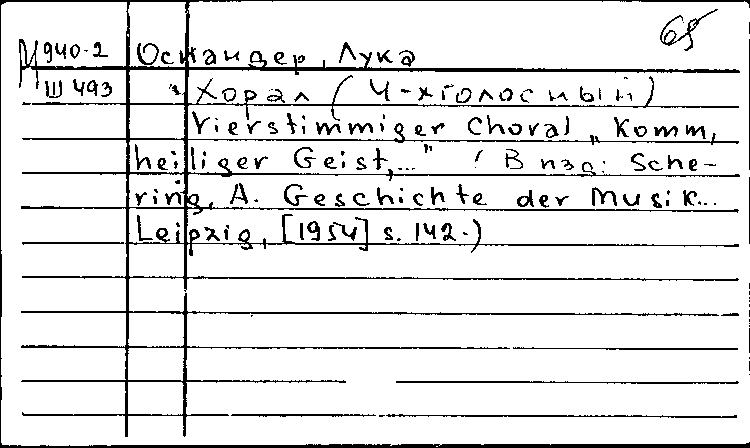 65
М 940-2 Осиандер, Лука
Ш 493 Хорал (4-хголосный)
Vierstimmiger Choral „Komm,
heiliger Geist,..." (В изд: Sche-
ring, A. Geschichte der Musik...
Leipzig, [1954] s. 142.)